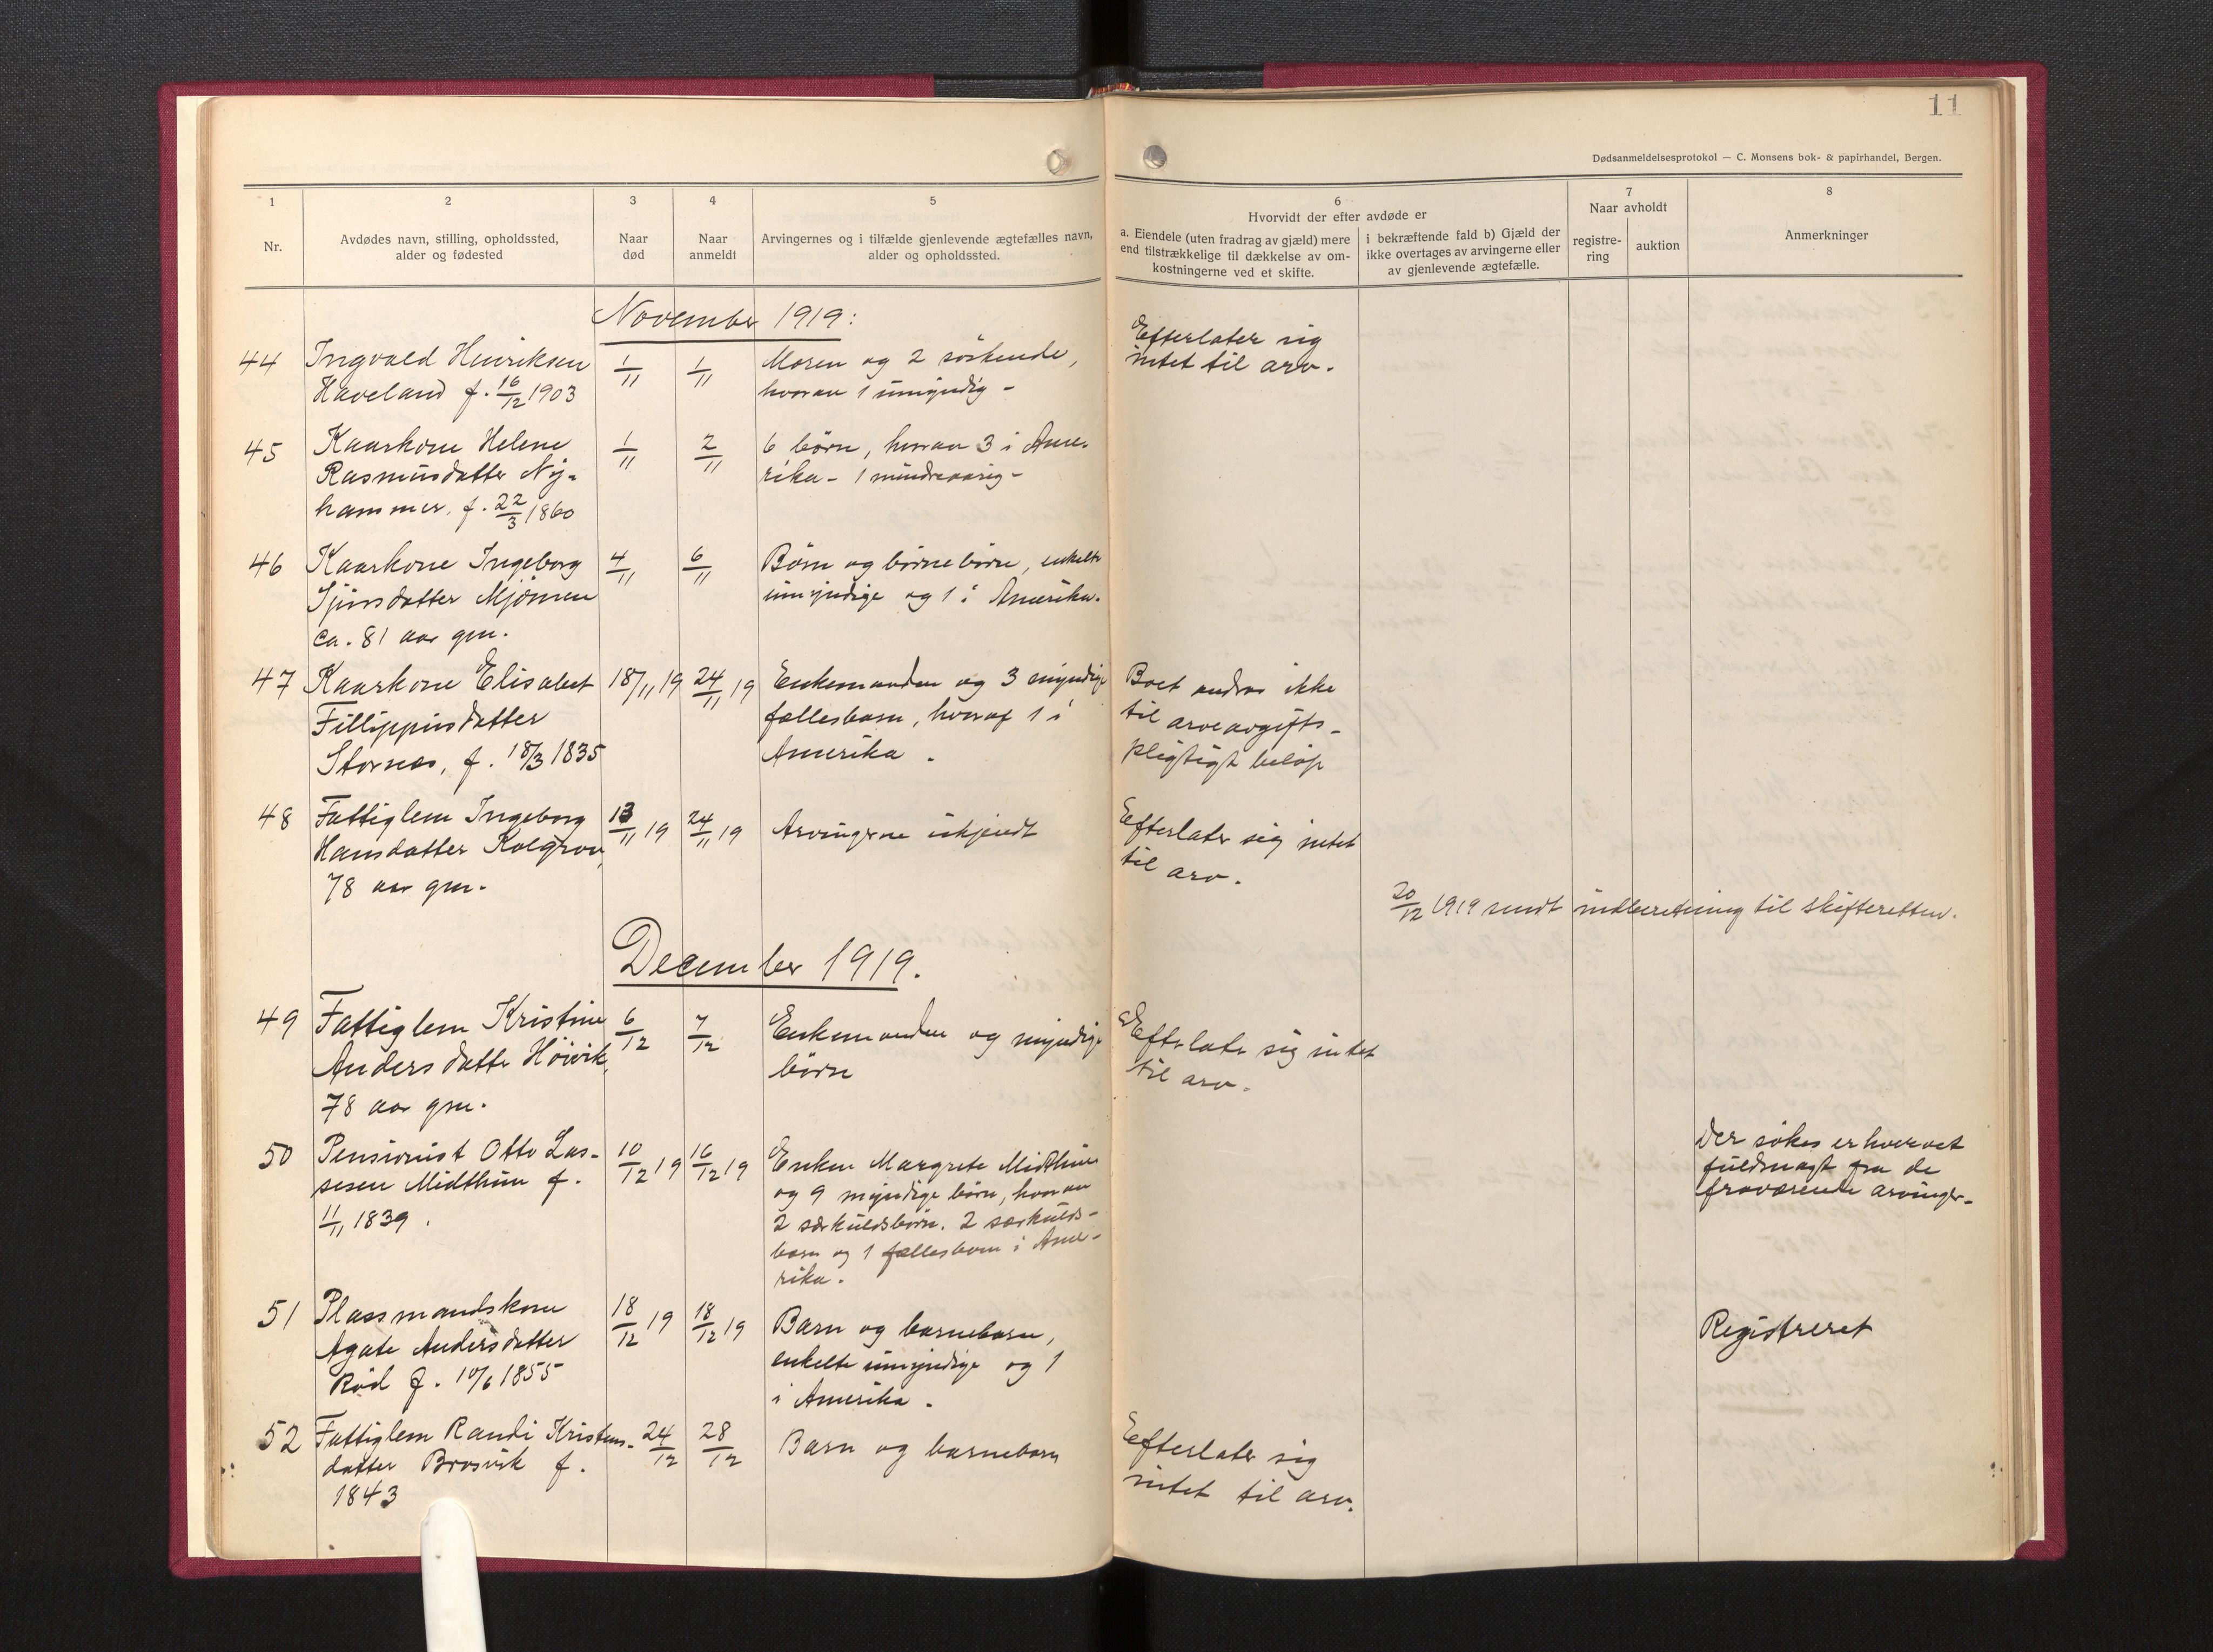 11
Dødsanmeldelsesprotokol — C. Monsens bok- & papirhandel, Bergen.
1 2 3 4 5 6 7 8
Nr.
Avdødes navn, stilling, opholdssted,
alder og fødested
Naar
død
Naar
anmeldt
Arvingernes og i tilfælde gjenlevende ægtefælles navn,
alder og opholdssted.
Hvorvidt der efter avdøde er
a. Eiendele (uten fradrag av gjæld) mere
end tilstrækkelige til dækkelse av om-
kostningerne ved et skifte.
i bekræftende fald b) Gjæld der
ikke overtages av arvingerne eller
av gjenlevende ægtefælle.
Naar avholdt
registre-
ring
auktion
Anmerkninger
November 1919:
44 Ingvald Henriksen 1/11 1/11 Moren og 2 søskende, Efterlater sig
Haveland f. 16/12 1903 hvorav 1 umyndig - intet til arv.
45 Kaarkone Helene 1/11 2/11 6 børn, hvorav 3 i Ame-
Rasmusdatter Ny- rika - 1 mindreaarig -
hammer, f. 22/3 1860
46 Kaarkone Ingeborg 4/11 6/11 Børn og børnebørn, enkelte
Sjursdatter Mjømen umyndige og 1 i Amerika.
ca. 81 aar gm.
47 Kaarkone Elisabet 18/11 19 24/11 19 Enkemanden og 3 myndige Boet andrar ikke
Fillippusdatter fællesbarn, hvoraf 1 i til arveavgifts-
Stornes, f. 18/3 1835 Amerika. pligtigt beløp
48 Fattiglem Ingeborg 13/11 19 24/11 19 Arvingerne ukjendt Efterlater sig intet
Hansdatter Kolgrov, til arv.
78 aar gm.
20/12 1919 sendt indberetning til skifteretten.
December 1919.
49 Fattiglem Kristine 6/12 7/12 Enkemanden og myndige Efterlater sig intet
Andersdatter Høivik, børn til arv.
78 aar gm.
50 Pensionist Otto Las- 10/12 19 16/12 19 Enken Margrete Midthun Der søkes erhvervet
sesen Midthun f. og 9 myndige børn, hvorav fuldmagt fra de
11/11 1839. 2 særkuldsbørn. 2 særkulds- fraværende arvinger.
barn og 1 fællesbarn i Ame-
rika.
51 Plassmandskone 18/12 19 18/12 19 Barn og barnebarn, Registreret
Agate Andersdatter enkelte umyndige og 1
Rød f. 10/6 1855 i Amerika.
52 Fattiglem Randi Kristens- 24/12 28/12 Barn og barnebarn Efterlater sig
datter Brosvik f. intet til arv.
1843